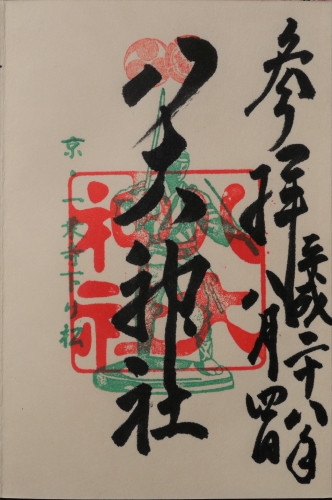 参拝
平成二十八年
八月四日
八大神社
八大神社
京・一乗寺下り松